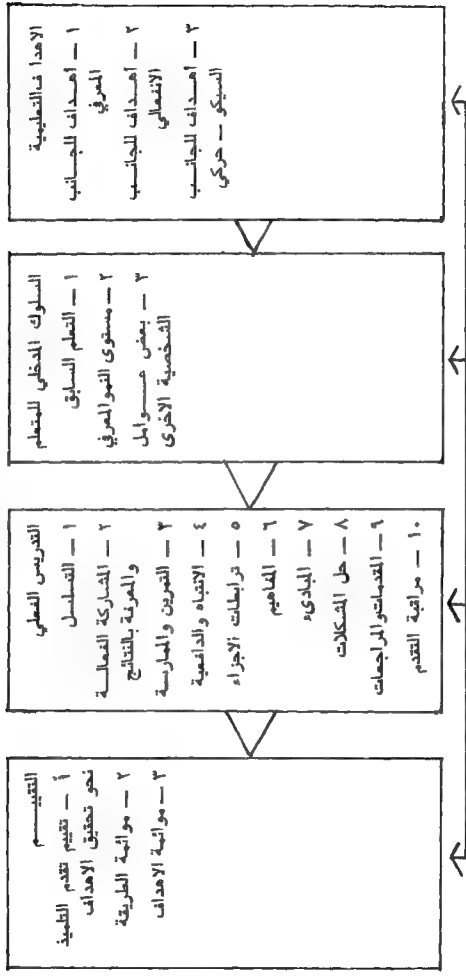 الاهدا ف التعليمية
١ – أهداف للجانب
المعرفي
٢ – أهداف للجانب
الانفعالي
٣ – أهداف للجانب
السيكو – حركي
السلوك المدخلي للمتعلم
١ – التعلم السابق
٢ – مستوى النمو المعرفي
٣ – بعض عــوامل
الشخصية الاخرى
التدريس الفعلي
١ – التسلسل
٢ – المشاركة الفعالة
والمعرفة بالنتائج
٣ – التمرين والممارسة
٤ – الانتباه والدافعية
٥ – ترابطات الاجزاء
٦ – المفاهيم
٧ – المبادىء
٨ – حل المشكلات
٩ – المقدمات والمراجعات
١٠ – مراقبة التقدم
التقييــم
أ – تقييم تقدم التلميذ
نحو تحقيق الاهداف
٢ – موائمة الطريقة
٣ – موائمة الاهداف